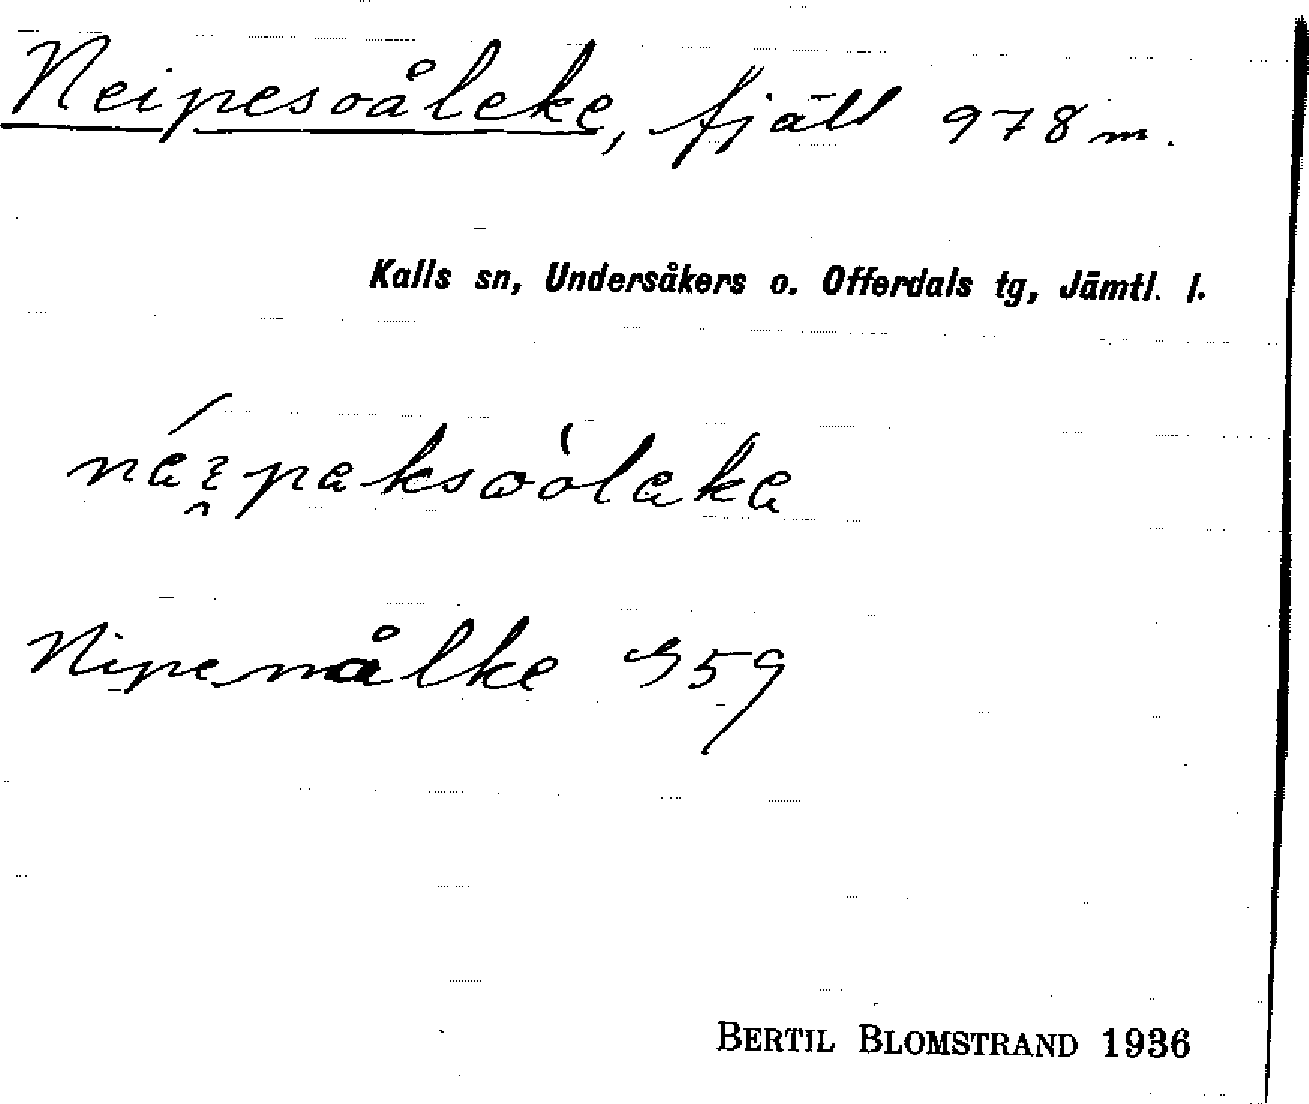 Neipesoåleke, fjäll 978 m.
Kalls sn, Undersåkers o. Offerdals tg, Jämtl. l.
Nipemålke 959
BERTIL BLOMSTRAND 1936